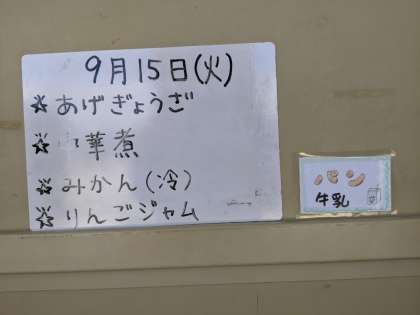 9月15日(火)
☆あげぎょうざ
☆華煮
☆みかん(冷)
☆りんごジャム
パン
牛乳